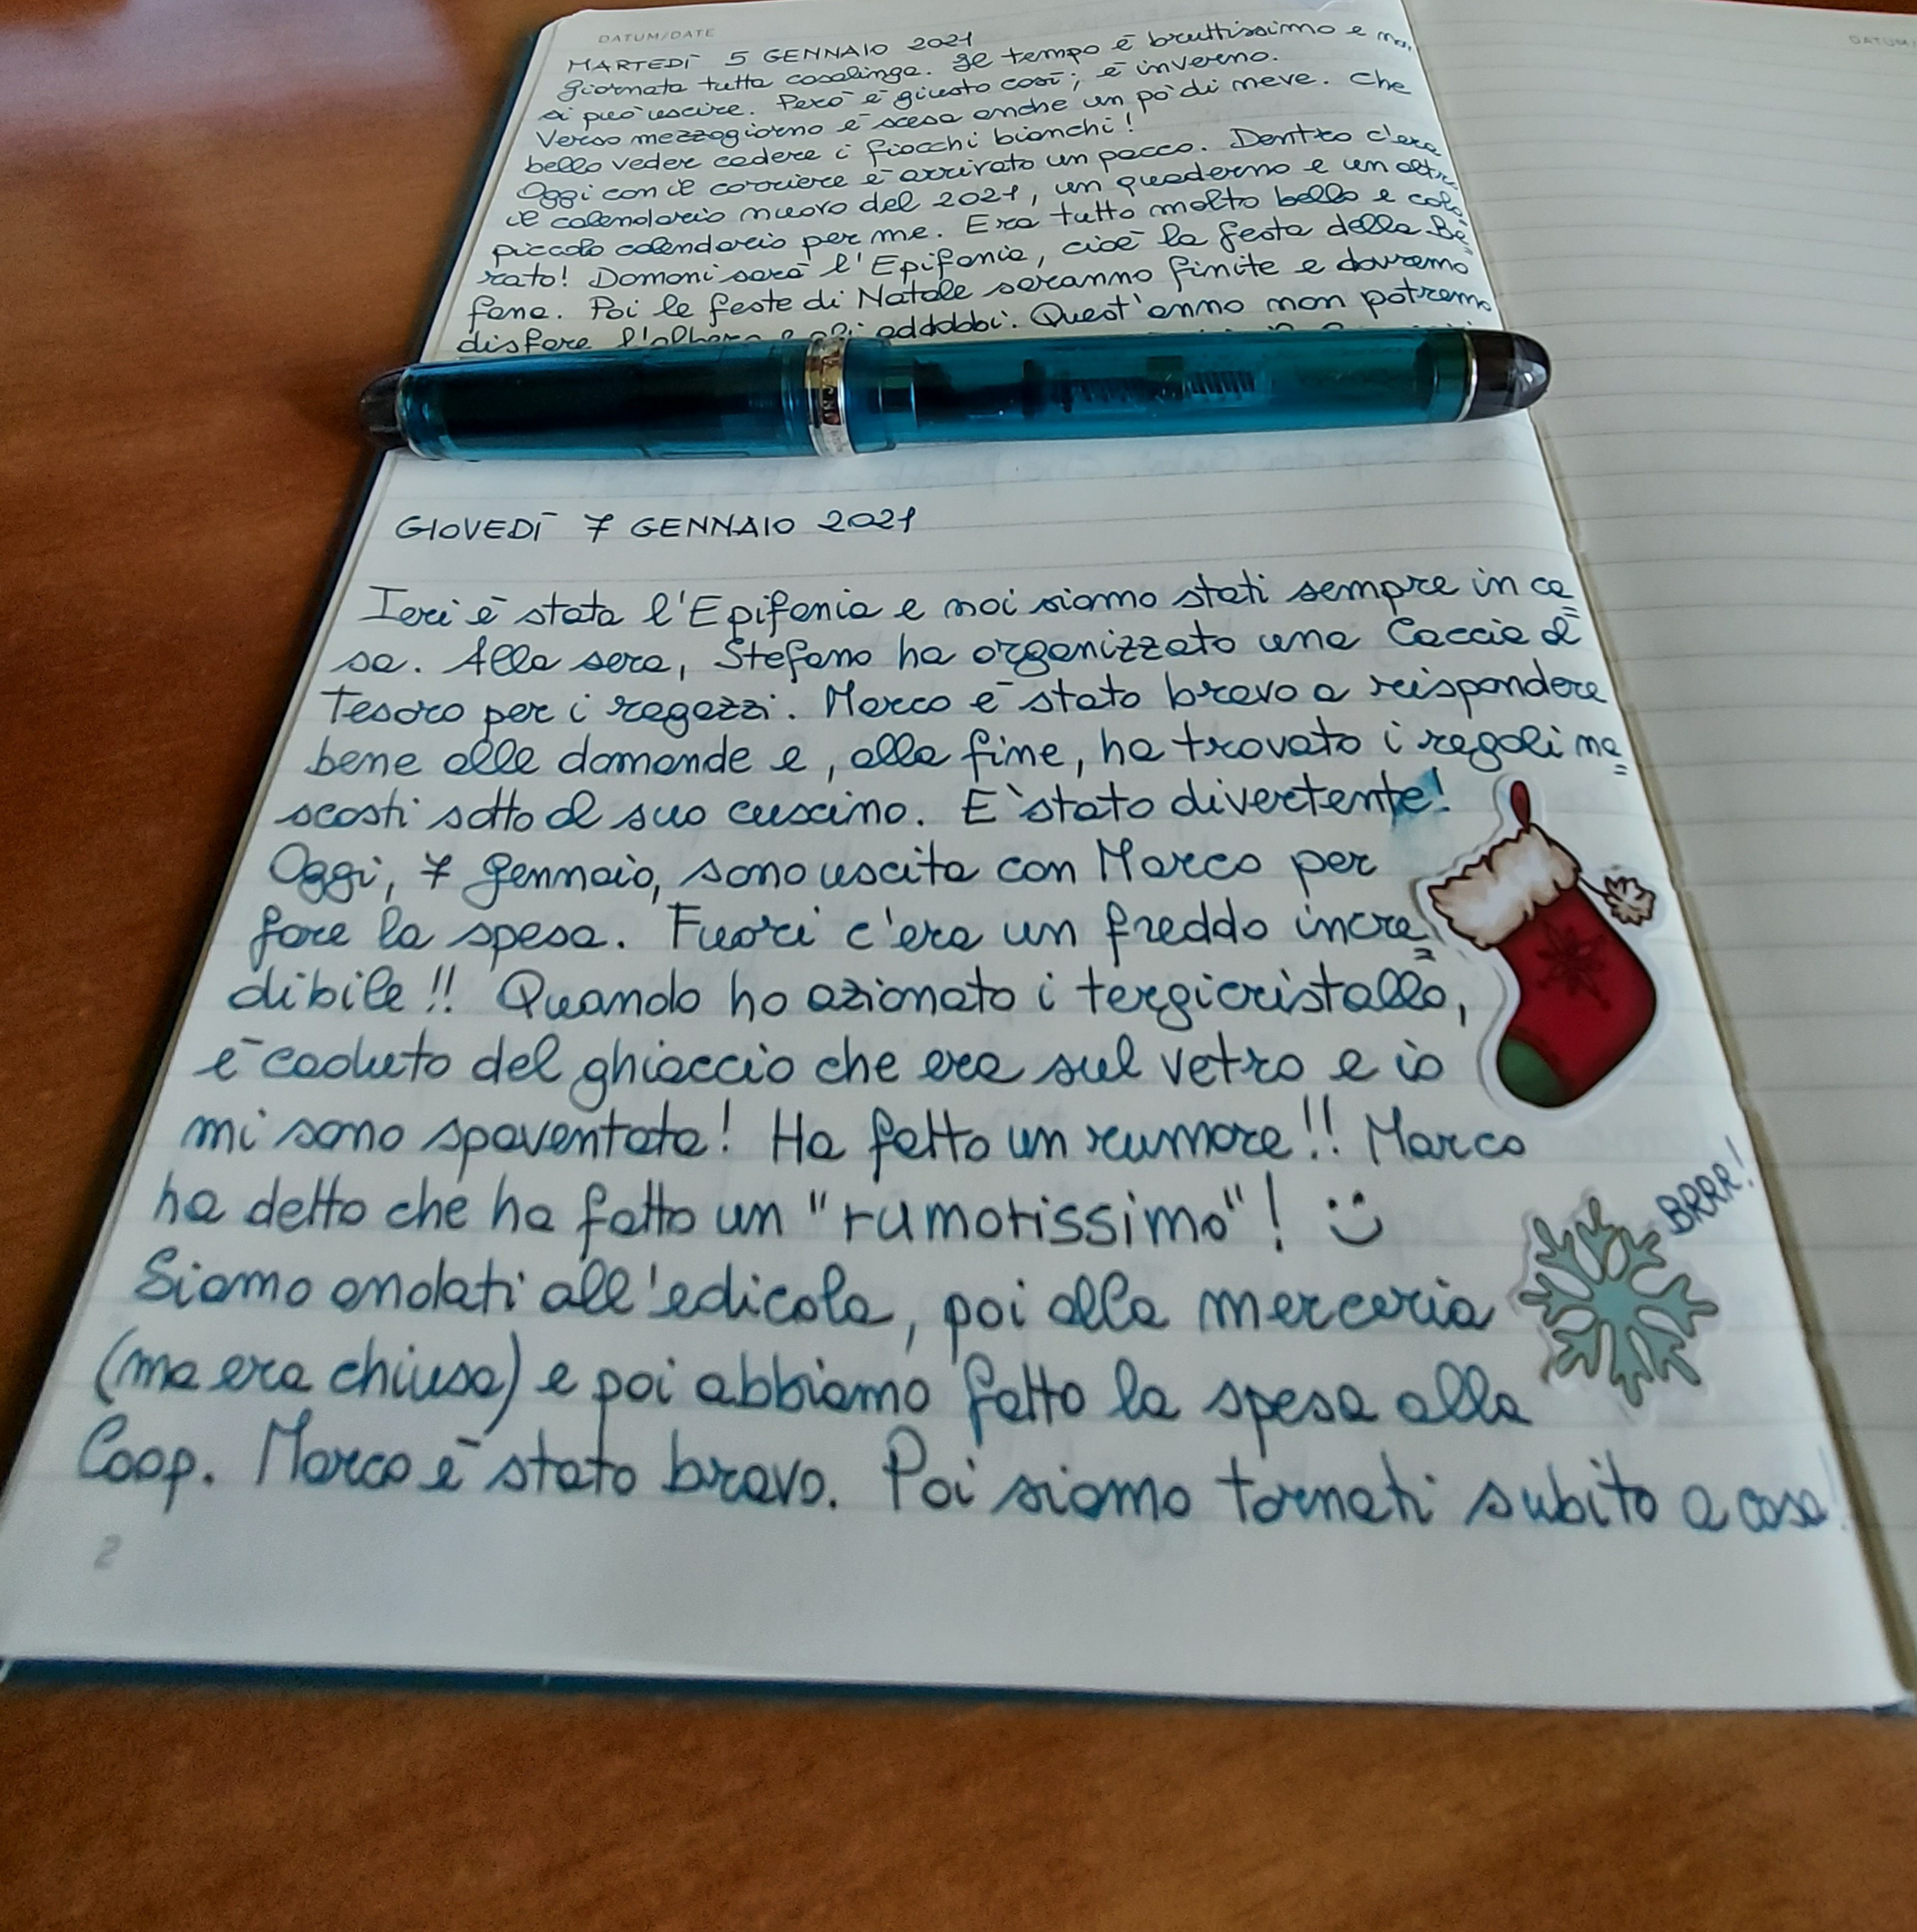 DATUM/DATE
MARTEDÌ 5 GENNAIO 2021
Giornata tutta casalinga. Il tempo è bruttissimo e non
si può uscire. Però è giusto così; è inverno.
Verso mezzogiorno è scesa anche un po' di neve. Che
bello veder cadere i fiocchi bianchi!
Oggi con il corriere è arrivato un pacco. Dentro c'era
il calendario nuovo del 2021, un quaderno e un altro
piccolo calendario per me. Era tutto molto bello e colo
rato! Domani sarà l'Epifania, cioè la festa della Be=
fana. Poi le feste di Natale saranno finite e dovremo
disfare l'albero e gli addobbi. Quest'anno non potremo
GIOVEDÌ 7 GENNAIO 2021
Ieri è stata l'Epifania e noi siamo stati sempre in ca=
sa. Alla sera, Stefano ha organizzato una Caccia al
Tesoro per i ragazzi. Marco è stato bravo a rispondere
bene alle domande e, alla fine, ha trovato i regali na=
scosti sotto al suo cuscino. E' stato divertente!
Oggi, 7 gennaio, sono uscita con Marco per
fare la spesa. Fuori c'era un freddo incre=
dibile!! Quando ho azionato i tergicristallo,
è caduto del ghiaccio che era sul vetro e io
mi sono spaventata! Ha fatto un rumore!! Marco
ha detto che ha fatto un "rumorissimo"! :)
BRRR!
Siamo andati all'edicola, poi alla merceria
(ma era chiusa) e poi abbiamo fatto la spesa alla
Coop. Marco è stato bravo. Poi siamo tornati subito a casa!
2